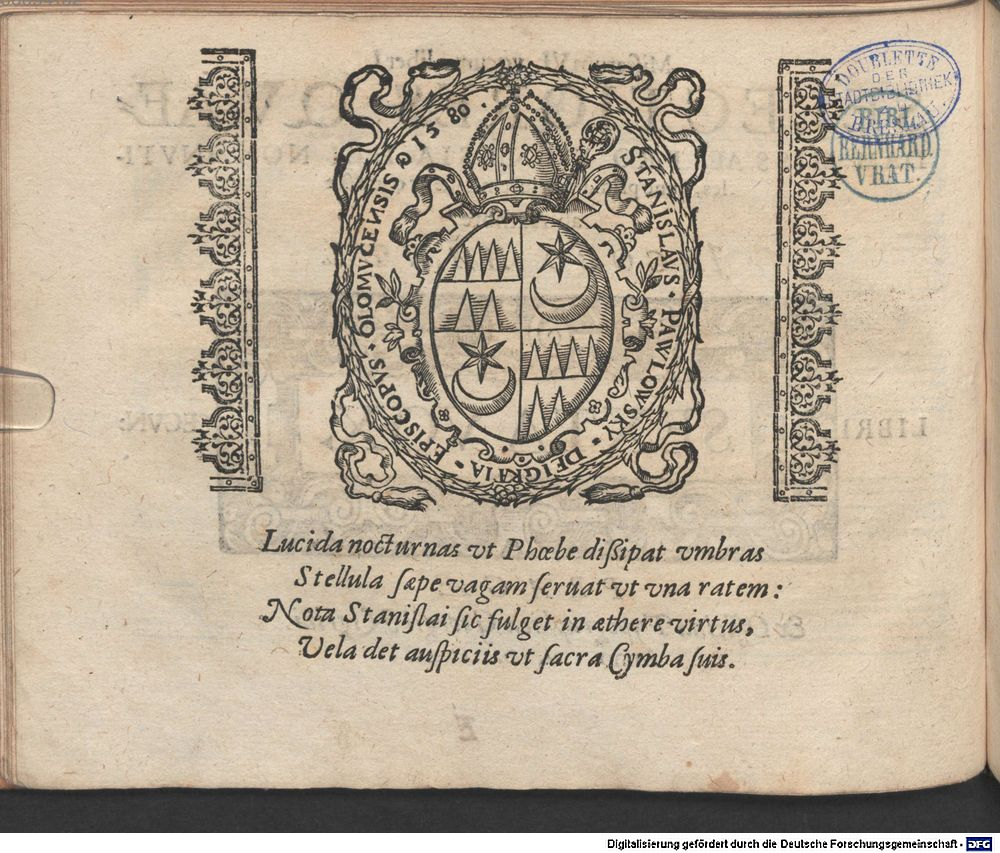 STANISLAVS · PAWLOWSKY · DEI GRATIA · EPISCOPVS · OLOMVCENSIS
1580
DOUBLETTE
DER
STADTBIBLIOTHEK
BIBL.
BERNHARD.
VRAT.
LIBRI
Lucida nocturnas vt Phœbe diſſipat vmbras
Stellula ſæpe vagam ſeruat vt vna ratem:
Nota Staniſlai ſic fulget in æthere virtus,
Vela det auſpiciis vt ſacra Cymba ſuis.
Digitalisierung gefördert durch die Deutsche Forschungsgemeinschaft - DFG